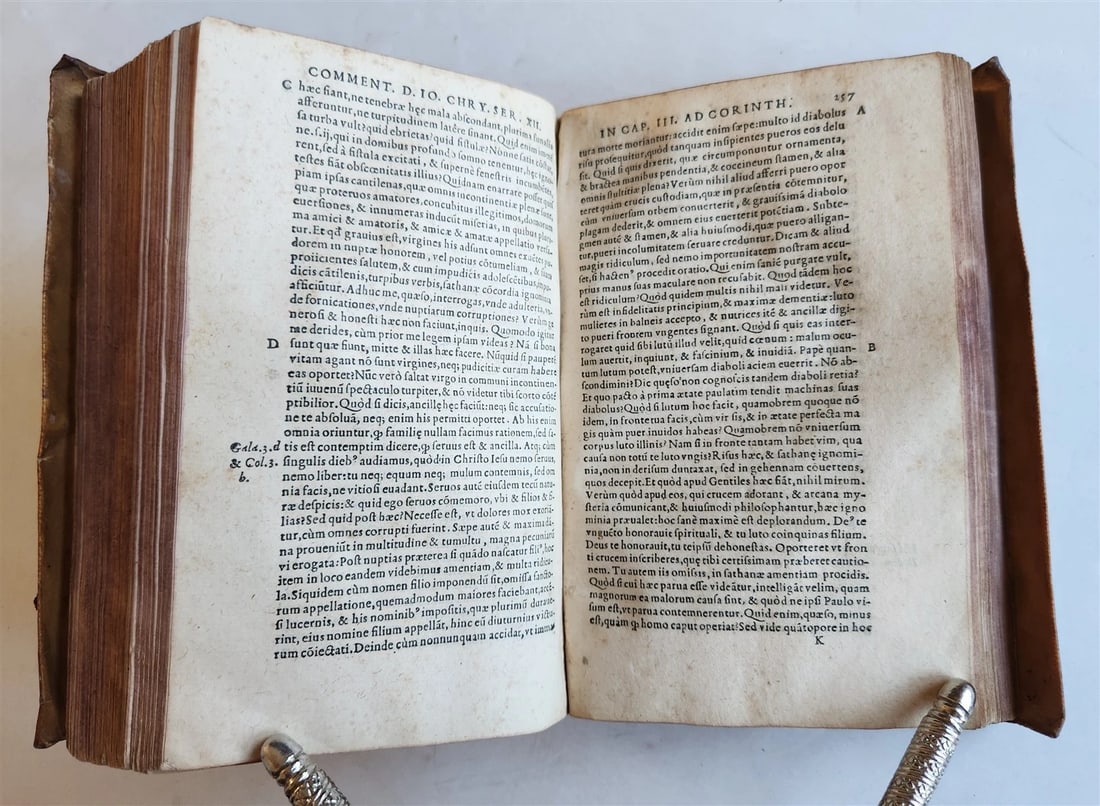 COMMENT. D. IO. CHRY. SER. XII.
C hæc fiant, ne tenebræ hęc mala abscondant, plurima
afferuntur, ne turpitudinem latêre sinant. Quid enim
sa turba vult? quid ebrietas? quid fistula? Nónne satis
ne. s. ij, qui in domibus profundo somno tenentur, hęc
rent, sed à fistula excitati, & supernè fenestris incumbẽtes,
testes fiãt obscœnitatis illius? Quidnam enarrate possit
piam ipsas cantilenas, quæ omnis incontinentiæ plenæ sunt,
quæ proteruos amatores, concubitus illegitimos, domorum
euersiones, & innumeras inducũt miserias, in quibus
ma amici & amatoris, & amicæ & amatæ appellatio
tur. Et qđ grauius est, virgines his adsunt omnes
dorem in nuptæ honorem, vel potius cõtumeliam, &
proiicientes salutem, & cum impudicis adolescẽtibus,
dicis cãtilenis, turpibus verbis, sathanæ cõcordia ignominia
afficiuntur. Adhuc me, quæso, interrogas, vnde adulteria,
de fornicationes, vnde nuptiarum corruptiones? Verùm
nerosi & honesti hæc non faciunt, inquis. Quomodo igitur
me derides, cùm prior me legem ipsam videas? Nã si bona
D sunt quæ fiunt, mitte & illas hæc facere. Nũquid si pauperẽ
vitam agant nõ sunt virgines, neq; pudicitiæ curam habere
eas oportet? Nũc verò saltat virgo in communi incontinen
tiũ iuuenũ spectaculo turpiter, & nõ videtur tibi scorto cõtẽ
ptibilior. Quòd si dicis, ancillę hęc faciũt: neq; sic accusatio-
ne te absoluã, neq; enim his permitti oportet. Ab his enim
omnia oriuntur, ꝙ familię nullam facimus rationem, sed sa-
Gala. 3. d tis est contemptim dicere, ꝙ seruus est & ancilla. Atq;
& Col. 3. singulis dieb⁹ audiamus, quòd in Christo Iesu nemo seruus,
b. nemo liber: tu neq; equum neq; mulum contemnis, sed om
nia facis, ne vitiosi euadant. Seruos autẽ eiusdem tecũ natu-
ræ despicis: & quid ego seruos cõmemoro, vbi & filios & fi-
lias? Sed quid post hæc? Necesse est, vt dolores mox exoriã-
tur, cùm omnes corrupti fuerint. Sæpe autẽ & maxima dã-
na proueniũt in multitudine & tumultu, magna pecuniarũ
vi erogata: Post nuptias præterea si quãdo nascatur fili⁹, hic
item in loco eandem videbimus amentiam, & multa ridicu-
la. Siquidem cùm nomen filio imponendũ sit, omissa sancto-
rum appellatione, quemadmodum maiores faciebant,
si lucernis, & his nominib⁹ impositis, quæ plurimũ duraue-
rint, eius nomine filium appellãt, hinc eũ diuturnius victu-
rum cõiectati. Deinde cùm nonnunquam accidat, vt imma
IN CAP. III. AD CORINTH. 257
tura morte moriantur: accidit enim sæpe: multo id diabolus A
risu prosequitur, quòd tanquam insipientes pueros eos delu
sit. Quid si quis dixerit, quæ circumponuntur ornamenta,
& bractea manibus pendentia, & coccineum stamen, & alia
omnis stultitiæ plena? Verùm nihil aliud afferri puero opor
teret quàm crucis custodiam, quæ in præsentia cõtemnitur,
cùm vniuersum orbem conuerterit, & grauissimã diabolo
plagam dederit, & omnem eius euerterit potẽtiam. Subte-
gmen autẽ & stamen, & alia huiusmodi, quæ puero alligan-
tur, pueri incolumitatem seruare creduntur. Dicam & aliud
magis ridiculum, sed nemo importunitatem nostram accu-
set, si hacten⁹ procedit oratio. Qui enim saniẽ purgare vult,
prius manus suas maculare non recusabit. Quod tãdem hoc
est ridiculum? Quòd quidem multis nihil mali videtur. Ve-
rùm est infidelitatis principium, & maximæ dementiæ: luto
mulieres in balneis accepto, & nutrices itẽ & ancillæ digi-
to pueri frontem vngentes signant. Quòd si quis eas inter-
rogaret quid sibi lutũ illud velit, quid cœnum: malum ocu-
lum auertit, inquiunt, & fascinium, & inuidiã. Papè quan- B
tum lutum potest, vniuersam diaboli aciem euertit. Nõ ab-
scondimini? Dic quęso non cognoscis tandem diaboli retia?
Et quo pacto à prima ætate paulatim tendit machinas suas
diabolus? Quòd si lutum hoc facit, quamobrem quoque nõ
idem, in fronte tua facis, cùm vir sis, & in ætate perfecta ma
gis quàm puer inuidos habeas? Quamobrem nõ vniuersum
corpus luto illinis? Nam si in fronte tantam habet vim, qua
causa non totũ te luto vngis? Risus hæc, & sathanę ignomi-
nia, non in derisum duntaxat, sed in gehennam cõuertens,
quos decepit. Et quòd apud Gentiles hæc fiãt, nihil mirum.
Verùm quòd apud eos, qui crucem adorant, & arcana my-
steria cõmunicãt, & huiusmodi philosophantur, hæc igno
minia præualet: hoc sanè maximè est deplorandum. De⁹ te
vnguẽto honorauit spirituali, & tu luto coinquinas filium.
Deus te honorauit, tu teipsũ dehonestas. Oporteret vt fron
ti crucem inscriberes, quę tibi certissimam præberet cautio-
nem. Tu autem iis omissis, in sathanæ amentiam procidis.
Quòd si cui hæc parua esse videãtur, intelligãt velim, quàm
magnorum ea malorum causa sint, & quòd ne ipsi Paulo vi-
sum est, vt parua contemnerentur. Quid enim, quæso, minus
est, quàm ꝙ homo caput operiat? Sed vide quãtopore in hoc
K